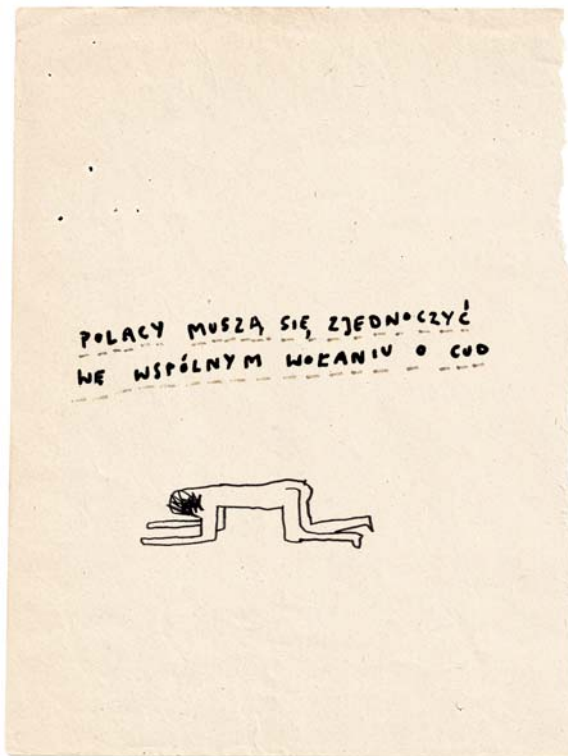 POLACY MUSZĄ SIĘ ZJEDNOCZYĆ
WE WSPÓLNYM WOŁANIU O CUD